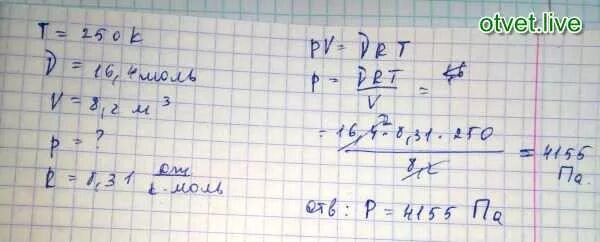 otvet.live
T = 250 К
ν = 16,4 моль
V = 8,2 м³
p = ?
R = 8,31 Дж / К·моль
pV = νRT
p = νRT / V =
= 16,4 · 8,31 · 250 / 8,2 = 4155 Па.
отв: P = 4155 Па